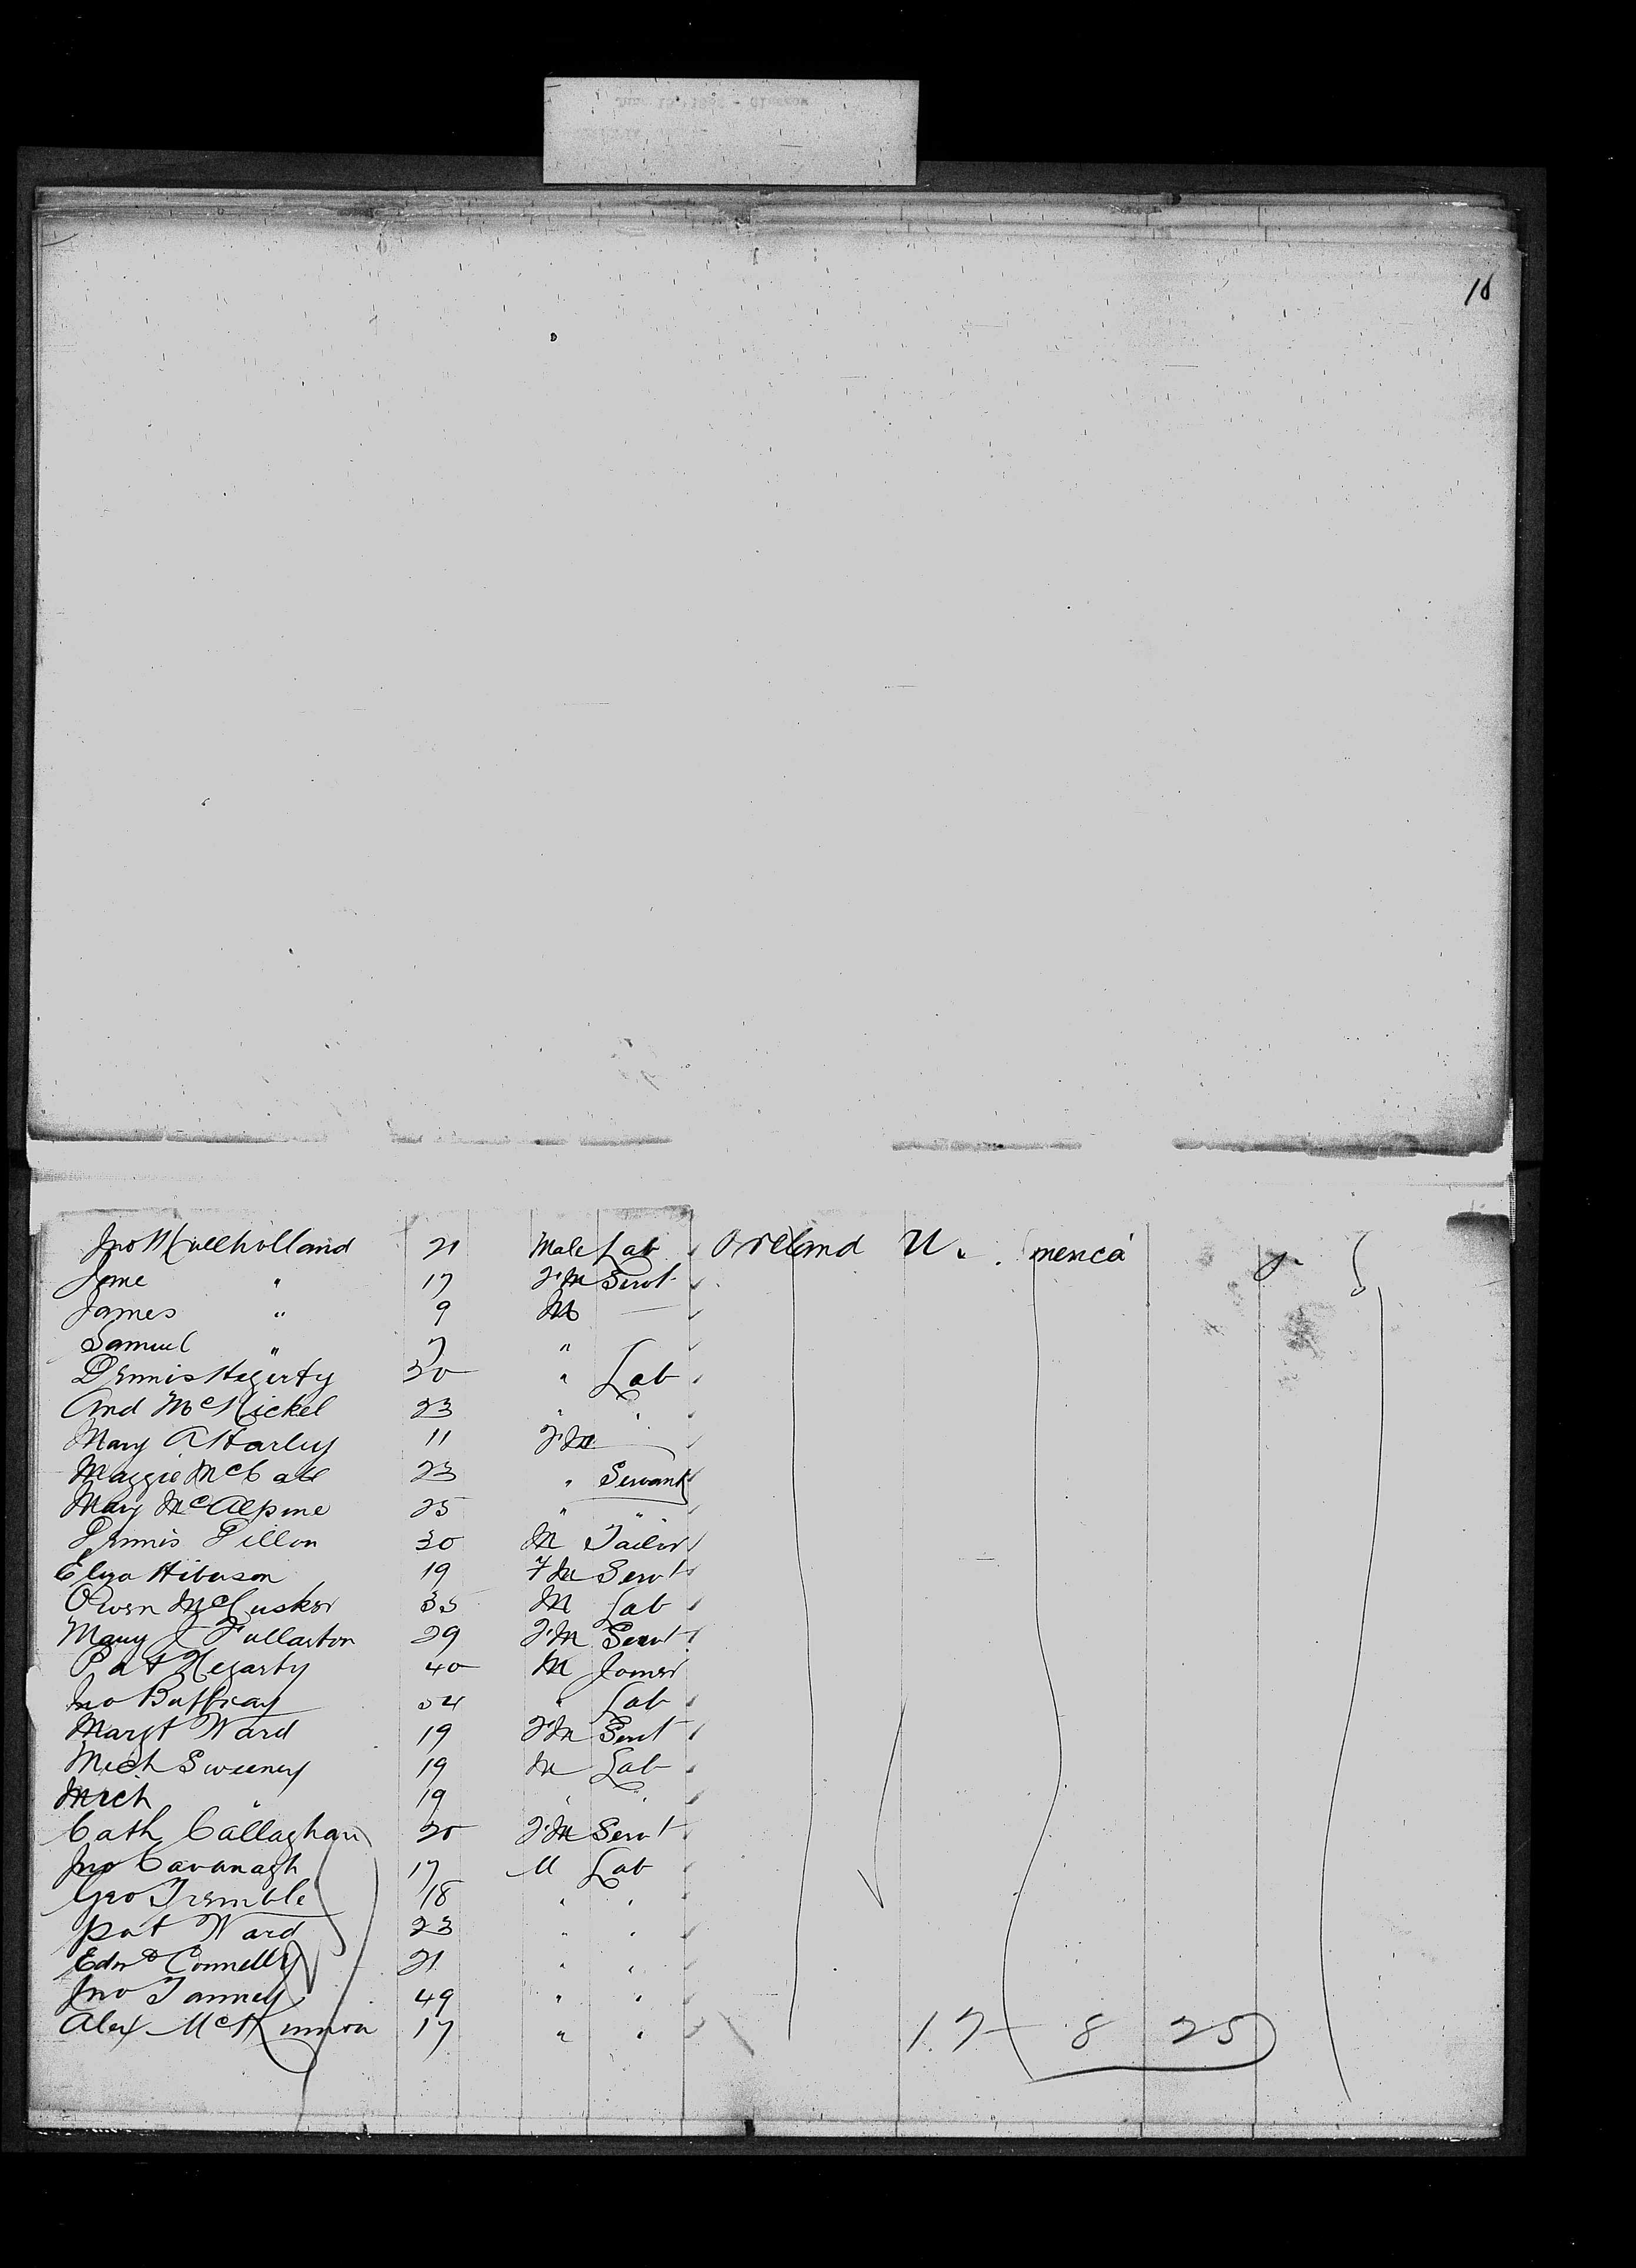 10
Jno Mullholland 21 Male Lab Ireland U. merica
Jane " 17 FM Servt
James " 9 M —
Samuel " 7 "
Dennis Hegerty 30 " Lab
And McNickel 23 " "
Mary A Harley 11 FM —
Maggie McCabe 23 " Servant
Mary McAlpine 25 " "
Dennis Dillon 30 M Tailor
Eliza Hibuson 19 FM Servt
Owen McCusker 35 M Lab
Mary J Fullarton 29 FM Servt
Pat Hegarty 40 M Joiner
Jno 34 " Lab
Margt Ward 19 FM Servt
Mich Sweeney 19 M Lab
Mich " 19 " "
Cath Callaghan 20 FM Servt
Jno Cavanagh 17 M Lab
Geo Tremble 18 " "
Pat Ward 23 " "
Edwd Connelly 21 " "
Jno Tanney 49 " "
Alex McKinnon 17 " " 17 8 25